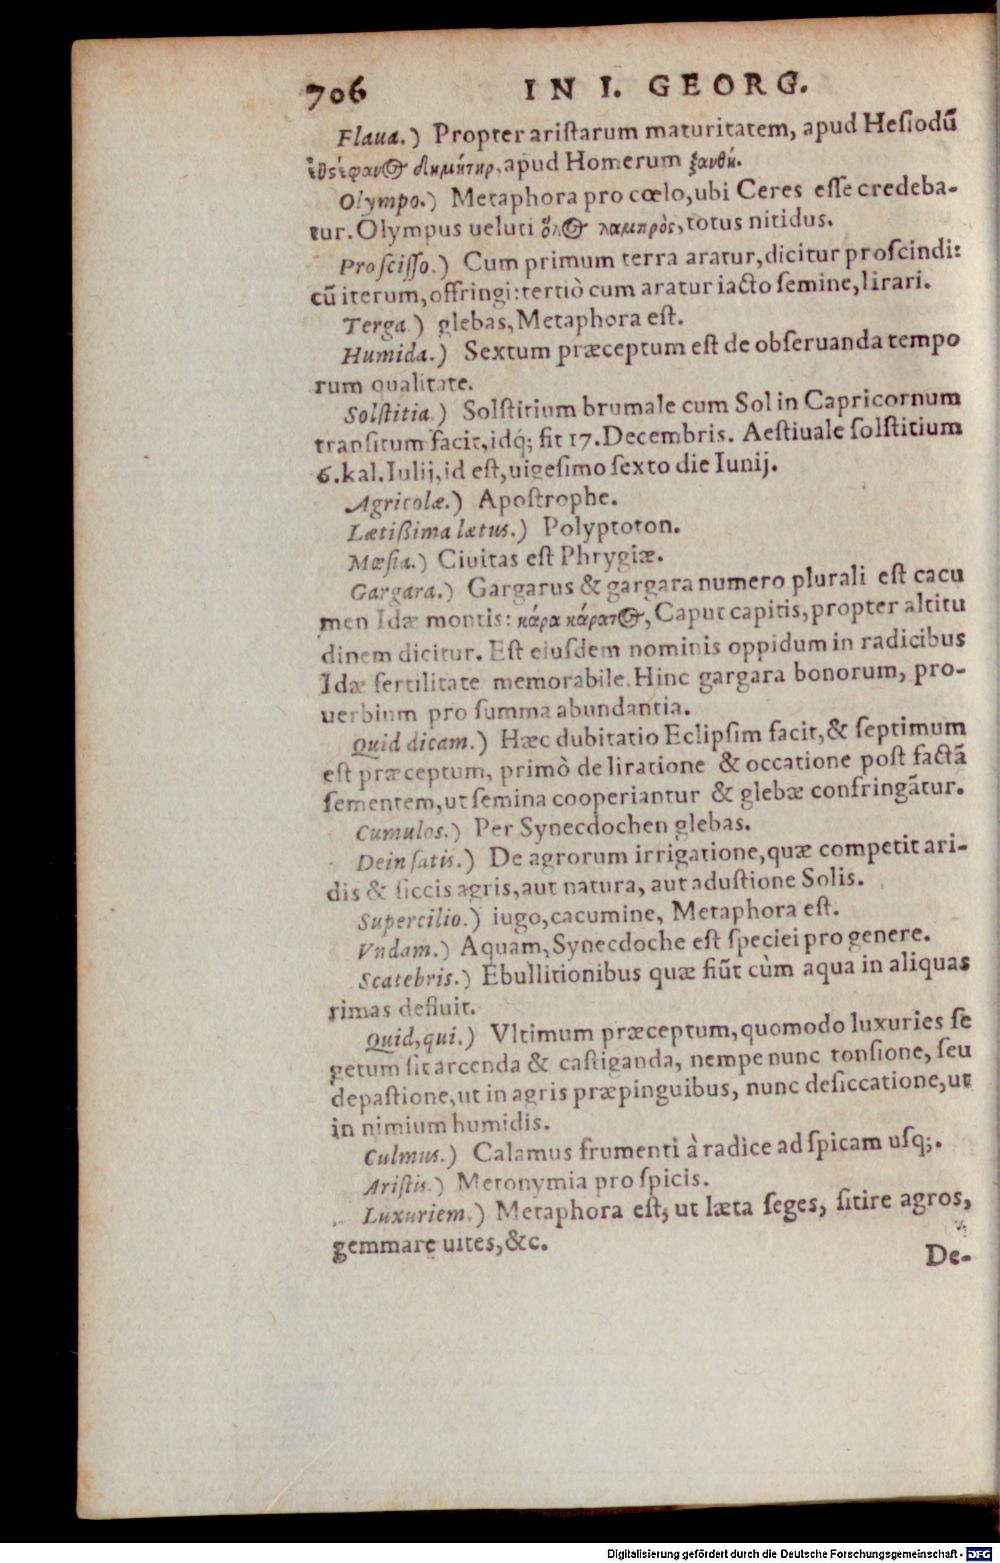 706 IN I. GEORG.
Flaua.) Propter aristarum maturitatem, apud Hesiodũ
δημήτηρ, apud Homerum ξανθή.
Olympo.) Metaphora pro cœlo, ubi Ceres esse credeba-
tur. Olympus ueluti ὅλος λαμπρὸς, totus nitidus.
Proscisso.) Cum primum terra aratur, dicitur proscindi:
cũ iterum, offringi: tertiò cum aratur iacto semine, lirari.
Terga) glebas, Metaphora est.
Humida.) Sextum præceptum est de obseruanda tempo
rum qualitate.
Solstitia.) Solstitium brumale cum Sol in Capricornum
transitum facit, idq́; fit 17. Decembris. Aestiuale solstitium
6. kal. Iulij, id est, uigesimo sexto die Iunij.
Agricolæ.) Apostrophe.
Lætißima lætus.) Polyptoton.
Mæsia.) Ciuitas est Phrygiæ.
Gargara.) Gargarus & gargara numero plurali est cacu
men Idæ montis: κάρα κάρατος, Caput capitis, propter altitu
dinem dicitur. Est eiusdem nominis oppidum in radicibus
Idæ fertilitate memorabile. Hinc gargara bonorum, pro-
uerbium pro summa abundantia.
Quid dicam.) Hæc dubitatio Eclipsim facit, & septimum
est præceptum, primò de liratione & occatione post factã
sementem, ut semina cooperiantur & glebæ confringãtur.
Cumulos.) Per Synecdochen glebas.
Dein satis.) De agrorum irrigatione, quæ competit ari-
dis & siccis agris, aut natura, aut adustione Solis.
Supercilio.) iugo, cacumine, Metaphora est.
Vndam.) Aquam, Synecdoche est speciei pro genere.
Scatebris.) Ebullitionibus quæ fiũt cùm aqua in aliquas
rimas defluit.
Quid, qui.) Vltimum præceptum, quomodo luxuries se
getum sit arcenda & castiganda, nempe nunc tonsione, seu
depastione, ut in agris præpinguibus, nunc desiccatione, ut
in nimium humidis.
Culmus.) Calamus frumenti à radice ad spicam usq;.
Aristis.) Metonymia pro spicis.
Luxuriem.) Metaphora est, ut læta seges, sitire agros,
gemmare uites, &c.
De-
Digitalisierung gefördert durch die Deutsche Forschungsgemeinschaft - DFG